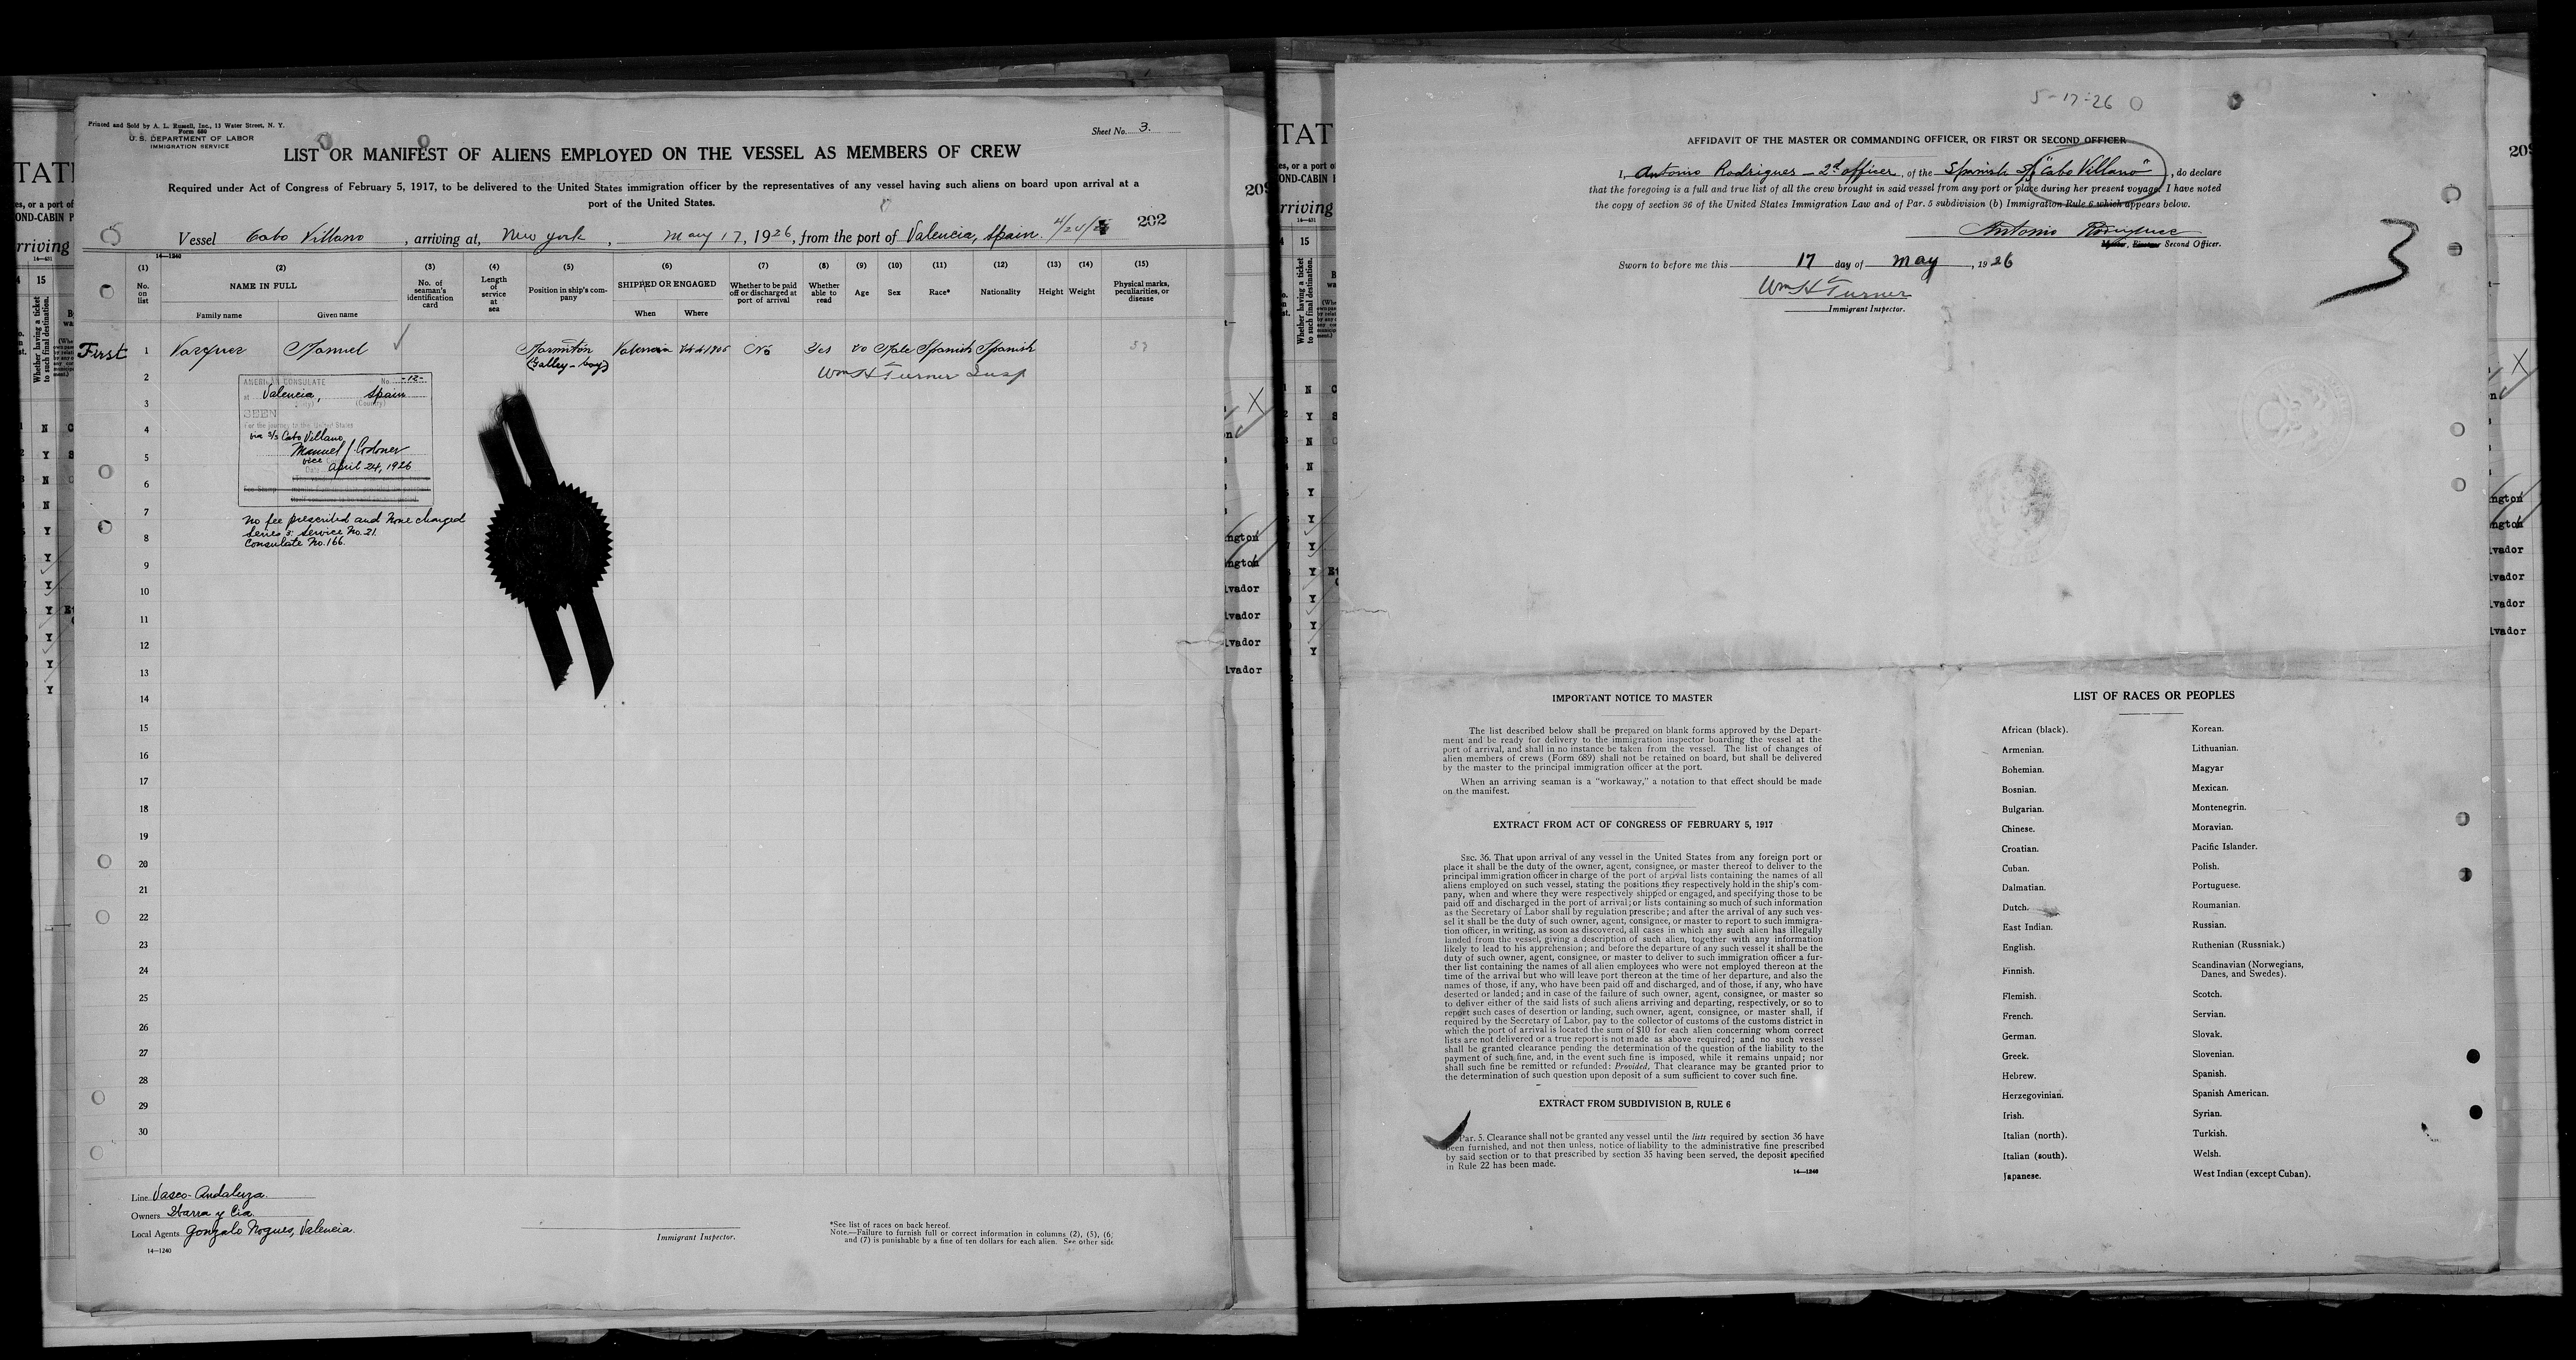 Printed and Sold by A. L. Russell, Inc., 13 Water Street, N. Y.
Form 689
U. S. DEPARTMENT OF LABOR
IMMIGRATION SERVICE
Sheet No. 3.
LIST OR MANIFEST OF ALIENS EMPLOYED ON THE VESSEL AS MEMBERS OF CREW
Required under Act of Congress of February 5, 1917, to be delivered to the United States immigration officer by the representatives of any vessel having such aliens on board upon arrival at a
port of the United States.
Vessel Cabo Villano, arriving at, New york, May 17, 1926, from the port of Valencia, Spain. 202
14—1240
(1) (2) (3) (4) (5) (6) (7) (8) (9) (10) (11) (12) (13) (14) (15)
No. on list
NAME IN FULL
Family name
Given name
No. of seaman's identification card
Length of service at sea
Position in ship's company
SHIPPED OR ENGAGED
When
Where
Whether to be paid off or discharged at port of arrival
Whether able to read
Age
Sex
Race*
Nationality
Height
Weight
Physical marks, peculiarities, or disease
First 1 Vazquez Manuel Marmitón Valencia No Yes Male Spanish Spanish
(Galley-boy)
Wm H Turner Insp
2
3
4
5
6
7
8
9
10
11
12
13
14
15
16
17
18
19
20
21
22
23
24
25
26
27
28
29
30
AMERICAN CONSULATE No. -12-
at Valencia, Spain
(Country)
SEEN
For the journey to the United States
via S/S Cabo Villano
Manuel J. Codoner
vice
Date April 24, 1926
No fee prescribed and None charged
Series 5: Service No. 21.
Consulate No. 166.
Line Vasco-Andaluza.
Owners Ibarra y Cia.
Local Agents Gonzalo Nogues, Valencia.
14—1240
Immigrant Inspector.
*See list of races on back hereof.
Note.—Failure to furnish full or correct information in columns (2), (5), (6)
and (7) is punishable by a fine of ten dollars for each alien. See other side
5-17-26
AFFIDAVIT OF THE MASTER OR COMMANDING OFFICER, OR FIRST OR SECOND OFFICER
I, Antonio Rodrigues - 2d officer, of the Spanish S/S "Cabo Villano", do declare
that the foregoing is a full and true list of all the crew brought in said vessel from any port or place during her present voyage. I have noted
the copy of section 36 of the United States Immigration Law and of Par. 5 subdivision (b) Immigration Rule 6 which appears below.
Antonio Rodrigues
Second Officer.
Sworn to before me this 17 day of May, 1926
Wm H Turner
Immigrant Inspector.
3
IMPORTANT NOTICE TO MASTER
The list described below shall be prepared on blank forms approved by the Depart-
ment and be ready for delivery to the immigration inspector boarding the vessel at the
port of arrival, and shall in no instance be taken from the vessel. The list of changes of
alien members of crews (Form 689) shall not be retained on board, but shall be delivered
by the master to the principal immigration officer at the port.
When an arriving seaman is a "workaway," a notation to that effect should be made
on the manifest.
EXTRACT FROM ACT OF CONGRESS OF FEBRUARY 5, 1917
SEC. 36. That upon arrival of any vessel in the United States from any foreign port or
place it shall be the duty of the owner, agent, consignee, or master thereof to deliver to the
principal immigration officer in charge of the port of arrival lists containing the names of all
aliens employed on such vessel, stating the positions they respectively hold in the ship's com-
pany, when and where they were respectively shipped or engaged, and specifying those to be
paid off and discharged in the port of arrival; or lists containing so much of such information
as the Secretary of Labor shall by regulation prescribe; and after the arrival of any such ves-
sel it shall be the duty of such owner, agent, consignee, or master to report to such immigra-
tion officer, in writing, as soon as discovered, all cases in which any such alien has illegally
landed from the vessel, giving a description of such alien, together with any information
likely to lead to his apprehension; and before the departure of any such vessel it shall be the
duty of such owner, agent, consignee, or master to deliver to such immigration officer a fur-
ther list containing the names of all alien employees who were not employed thereon at the
time of the arrival but who will leave port thereon at the time of her departure, and also the
names of those, if any, who have been paid off and discharged, and of those, if any, who have
deserted or landed; and in case of the failure of such owner, agent, consignee, or master so
to deliver either of the said lists of such aliens arriving and departing, respectively, or so to
report such cases of desertion or landing, such owner, agent, consignee, or master shall, if
required by the Secretary of Labor, pay to the collector of customs of the customs district in
which the port of arrival is located the sum of $10 for each alien concerning whom correct
lists are not delivered or a true report is not made as above required; and no such vessel
shall be granted clearance pending the determination of the question of the liability to the
payment of such fine, and, in the event such fine is imposed, while it remains unpaid; nor
shall such fine be remitted or refunded: Provided, That clearance may be granted prior to
the determination of such question upon deposit of a sum sufficient to cover such fine.
EXTRACT FROM SUBDIVISION B, RULE 6
Par. 5. Clearance shall not be granted any vessel until the lists required by section 36 have
been furnished, and not then unless, notice of liability to the administrative fine prescribed
by said section or to that prescribed by section 35 having been served, the deposit specified
in Rule 22 has been made.
14—1240
LIST OF RACES OR PEOPLES
African (black).
Armenian.
Bohemian.
Bosnian.
Bulgarian.
Chinese.
Croatian.
Cuban.
Dalmatian.
Dutch.
East Indian.
English.
Finnish.
Flemish.
French.
German.
Greek.
Hebrew.
Herzegovinian.
Irish.
Italian (north).
Italian (south).
Japanese.
Korean.
Lithuanian.
Magyar
Mexican.
Montenegrin.
Moravian.
Pacific Islander.
Polish.
Portuguese.
Roumanian.
Russian.
Ruthenian (Russniak.)
Scandinavian (Norwegians,
Danes, and Swedes).
Scotch.
Servian.
Slovak.
Slovenian.
Spanish.
Spanish American.
Syrian.
Turkish.
Welsh.
West Indian (except Cuban).